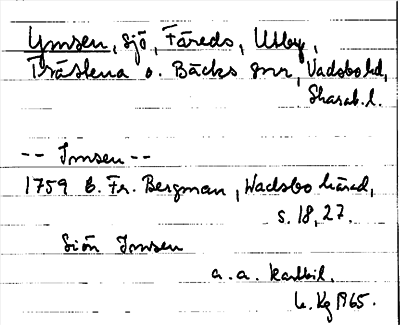 Ymsen, sjö, Färeds, Utby,
Trästena o. Bäcks snr, Vadsbo hd,
Skarab. l.
-- Imsen --
1759 B. Fr. Bergman, Wadsbo härad,
s. 18, 27.
Siön Imsen
a. a. kartbil.
L. Kg 1965.